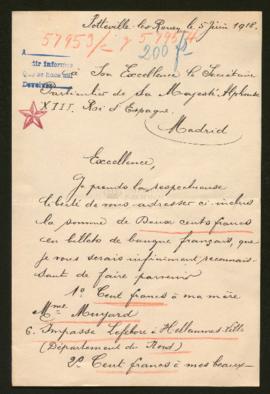 Sotteville-lez-Rouen, le 5 juin 1918.
57953/- y 57954
200 fs
A
dir informes
Devolverse
a Son Excellence le Secrétaire
Particulier de Sa Majesté Alphonse
XIII. Roi d'Espagne.
Madrid
Excellence,
Je prends la respectueuse
liberté de vous adresser ci-inclus
la somme de Deux cents francs
en billets de banque français, que
je vous serais infiniment reconnais-
sant de faire parvenir
1º Cent francs à ma mère
Mme Muyard
6. Impasse Lefebvre à Hellemmes-Lille
(Département du Nord)
2º Cent francs à mes beaux-